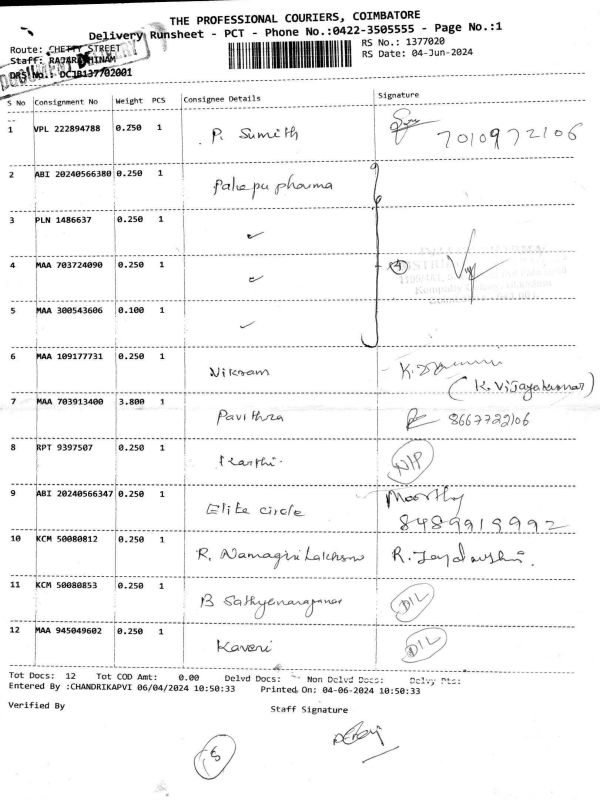 THE PROFESSIONAL COURIERS, COIMBATORE
Delivery Runsheet - PCT - Phone No.:0422-3505555 - Page No.:1
Route: CHETTY STREET
RS No.: 1377020
Staff: RAJARATHINAM
RS Date: 04-Jun-2024
DRS No.: DCJB137702001
S No Consignment No Weight PCS Consignee Details Signature
1 VPL 222894788 0.250 1 P. Sumith 7010972106
2 ABI 20240566380 0.250 1 Palepu pharma
3 PLN 1486637 0.250 1
4 MAA 703724090 0.250 1 4
5 MAA 300543606 0.100 1
6 MAA 109177731 0.250 1 Nikram
(K. Vijayakumar)
7 MAA 703913400 3.800 1 Pavithra 8667722106
8 RPT 9397507 0.250 1 Karthi. N/P
9 ABI 20240566347 0.250 1 Elite circle Moorthy
8489919992
10 KCM 50080812 0.250 1 R. Namagiri Lakhsmi
11 KCM 50080853 0.250 1 B Sathyenaraganan D/L
12 MAA 945049602 0.250 1 Kaveri D/L
Tot Docs: 12 Tot COD Amt: 0.00 Delvd Docs: Non Delvd Docs: Delvy Pts:
Entered By :CHANDRIKAPVI 06/04/2024 10:50:33 Printed On: 04-06-2024 10:50:33
Verified By Staff Signature